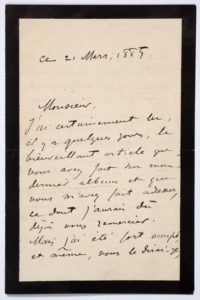 ce 21 Mars, 1885
Monsieur,
J'ai certainement lu,
il y a quelques jours, le
bienveillant article que
vous avez fait sur mon
dernier album et que
vous m'avez fait adresser,
ce dont j'aurais dû
déjà vous remercier.
Mais j'ai été fort occupé
et même, vous le dirai-je,